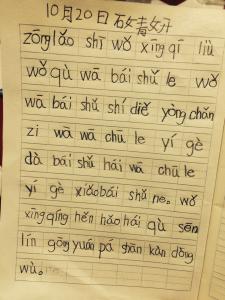 10月20日
zōng lǎo shī wǒ xīng qī liù
wǒ qù wā bái shǔ le wǒ
wā bái shǔ shí dié yòng chǎn
zi wā wā chū le yí gè
dà bái shǔ hái wā chū le
yí gè xiǎo bái shǔ ne。wǒ
xīng qíng hěn hǎo hái qù sēn
lín gōng yuán pá shān kàn dòng
wù。